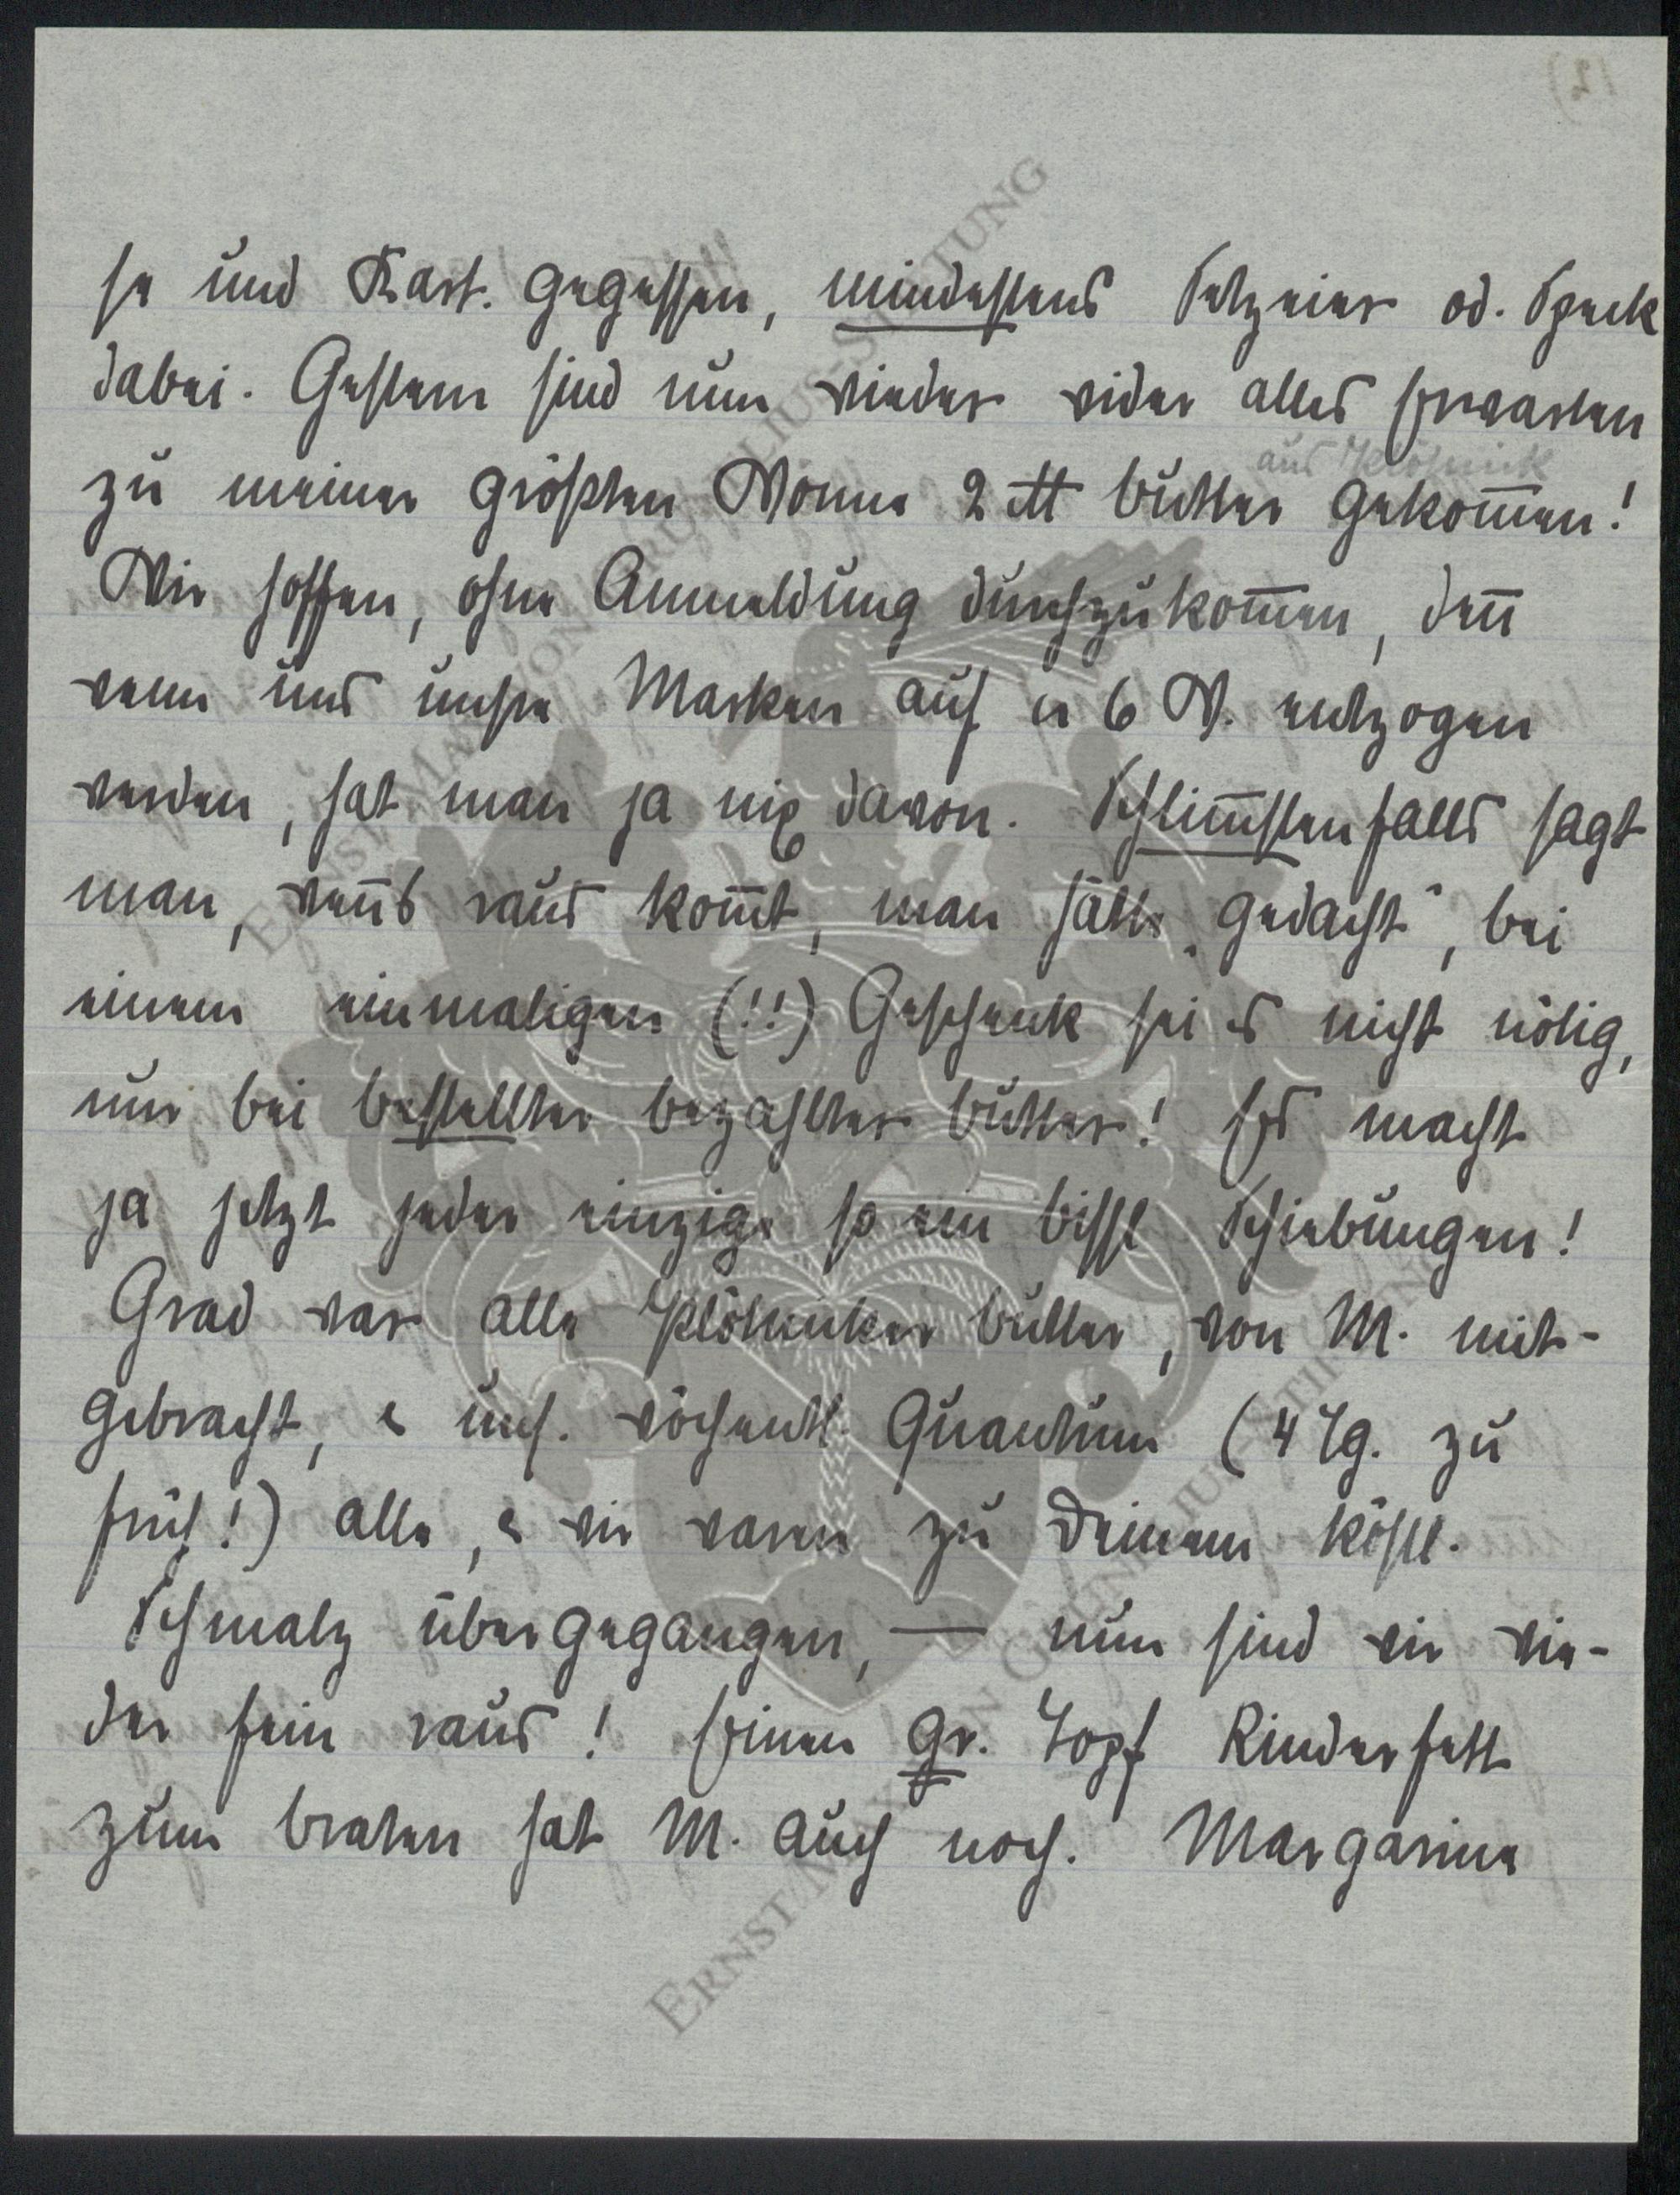 12)
se und Kart. gegessen, mindestens Setzeier od. Speck
dabei. Gestern sind nun wieder wider alles Erwarten
aus Plötnick
zu meiner größten Wonne 2 ℔ Butter gekom̄en!
Wir hoffen, ohne Anmeldung durchzukom̄en, den̄
wenn uns unsre Marken auf 6 W. entzogen
werden, hat man ja nix davon. Schlim̄stenfalls sagt
man, wen̄s raus kom̄t, man hätte „gedacht“, bei
einem einmaligen (!!) Geschenk sei es nicht nötig,
nur bei bestellter bezahlter Butter! Es macht
ja jetzt jeder einzige so ein bissl Schiebungen!
Grad war alle Butter, von M. mit-
gebracht, & uns. wöchentl. Quantum (4 Tg. zu
früh!) alle, & wir waren zu Deinem köstl.
Schmalz übergegangen, — nun sind wir wie-
der fein raus! Einen gr. Topf Rinderfett
zum braten hat M. auch noch. Margarine
ERNST MARTION GRUNELIUS-STIFTUNG
ERNST MAX VON GRUNELIUS-STIFTUNG